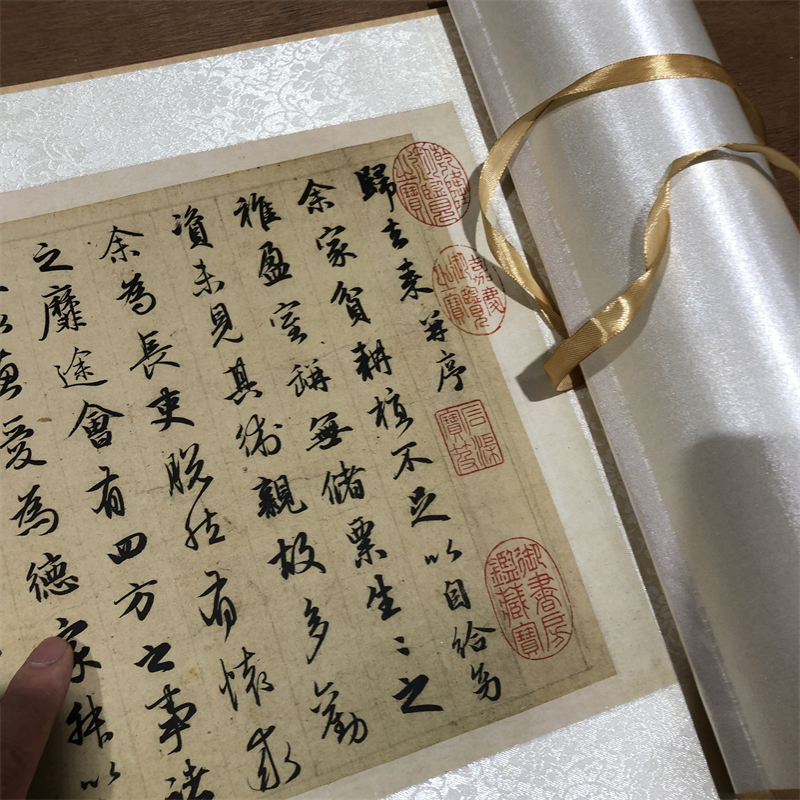 乾隆御覽之寶
嘉慶御覽之寶
石渠寶笈
御書房鑑藏寶
歸去来并序
余家貧耕植不足以自給幼
稚盈室缾無儲粟生〻之
資未見其術親故多勸
余為長吏脫然有懷求
之靡途會有四方之事諸
以惠愛為德家叔以